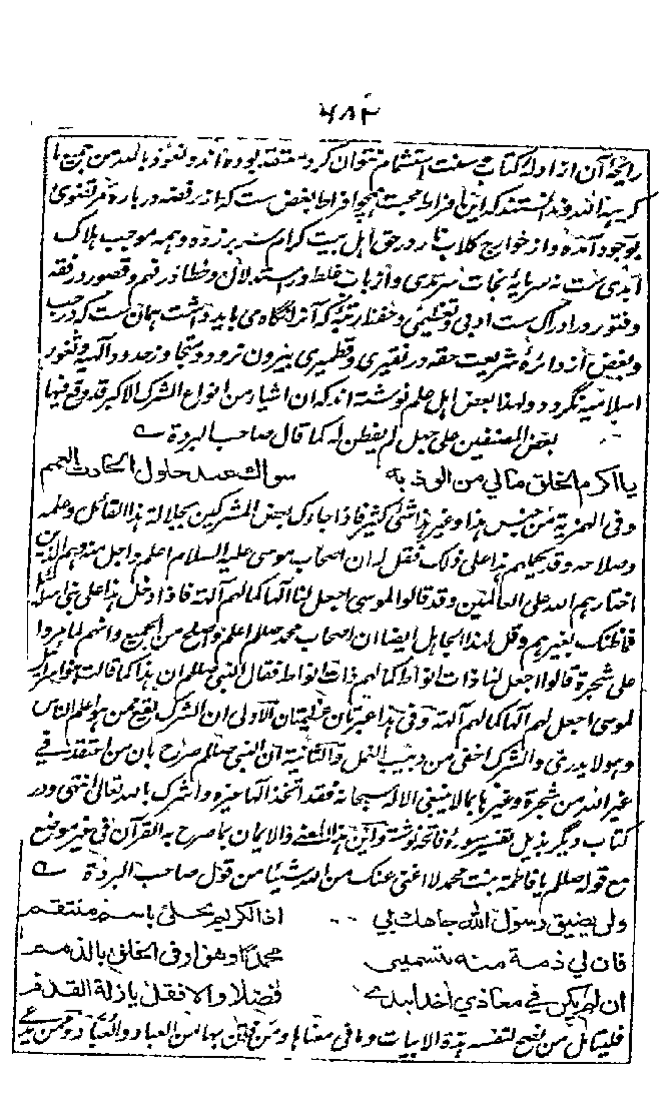 ۴۸۲
رایحهٔ آن از ادلهٔ کتاب و سنت استشمام نتوان کرد معتقد بوده‌اند و نعوذ بالله من جمیع ما
کرہہ اللہ وندانستند که این افراط محبت همچو افراط بغض ست که از رفضه در بارهٔ مرتضوی
بوجود آمده و از خوارج کلاب نار در حق اهل بیت کرام سر بر زده و همه موجب هلاک
ابدی ست نه سرمایهٔ نجات سرمدی و از باب غلط در استدلال و خطا در فهم و قصور در فقه
و فتور در ادراک ست ادبی و تعظیمی و حفظ رتبهٔ که آنرا نگاه می باید داشت همان ست که در حب
و بغض از دائرهٔ شریعت حقه در نقیری و قطمیری بیرون نرود و متجاوز حدود آلهیه و ثغور
اسلامیه نگردد و لهذا بعض اهل علم نوشته‌اند که ان اشیاء من انواع الشرک الاکبر قد وقع فیها
بعض المصنفین علی جهل لم یفطن له کما قال صاحب البردة ے
یا اکرم الخلق مالی من الوذ به سواک عند حلول الحادث العمم
و فی الهمزیة من جنس هذا و غیر هذا شئ کثیر فاذا جادلک بعض المشرکین بجلالة هذا القائل و علمه
و صلاحه و قد یحیلهم هذا علی ذلک فقل له ان اصحاب موسی علیه السلام اعلم و اجل منه و هم الذین
اختارهم الله علی العالمین و قد قالوا لموسی اجعل لنا آلها کما لهم آلهة فاذا دخل هذا علی بنی اسرائیل
فما ظنک بغیرهم و قل لهذا الجاهل ایضا ان اصحاب محمد صلعم اعلم و اصلح من الجمیع و انهم لما مروا
علی شجرة قالوا اجعل لنا ذات انواط کما لهم ذات انواط فقال النبی صلعم ان هذا کما قالت بنو اسرائیل
لموسی اجعل لهم آلها کما لهم آلهة و فی هذا عبرتان عظیمتان الاولی ان الشرک یقع ممن هو اعلم الناس
و هو لا یدری و الشرک اخفی من دبیب النمل و الثانیة ان النبی صلعم صرح بان من اعتقد فی
غیر الله من شجرة و غیرها بما لا ینبغی الا له سبحانه فقد اتخذ آلها غیره و اشرک بالله تعالی انتهی و در
کتاب دیگر بذیل تفسیر سورهٔ فاتحه نوشته و این هذا المعنی و الایمان بما صرح به القرآن فی غیر موضع
مع قوله صلعم یا فاطمة بنت محمد لا اغنی عنک من الله شیئا من قول صاحب البردة ے
ولن یضیق رسول الله جاهك بی اذا الکریم تحلی باسم منتقم
فان لی ذمة منه بتسمیتی محمدا وهو اوفی الخلق بالذمم
ان لم یکن فی معادی آخذا بیدی فضلا والا فقل یا زلة القدم
فلیتامل من نصح لنفسه هذه الابیات و ما فی معناها و من فتن بها من العباد و العبّاد و ممن یدعی